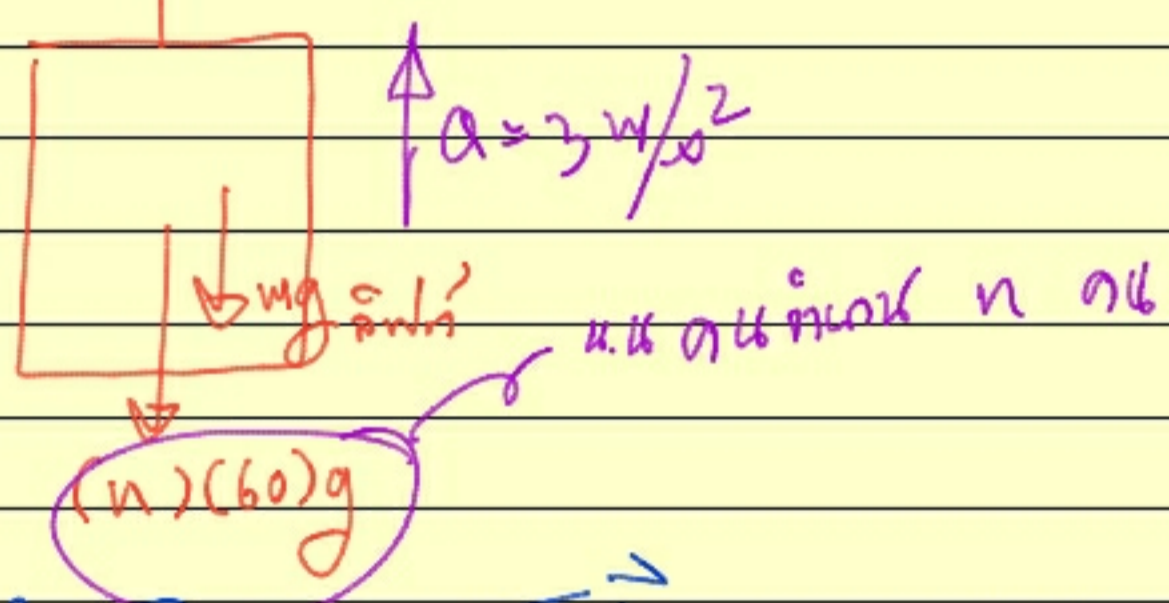 a = 3 m/s²
mg ลิฟท์
น.น คนจำนวน n คน
(n)(60)g